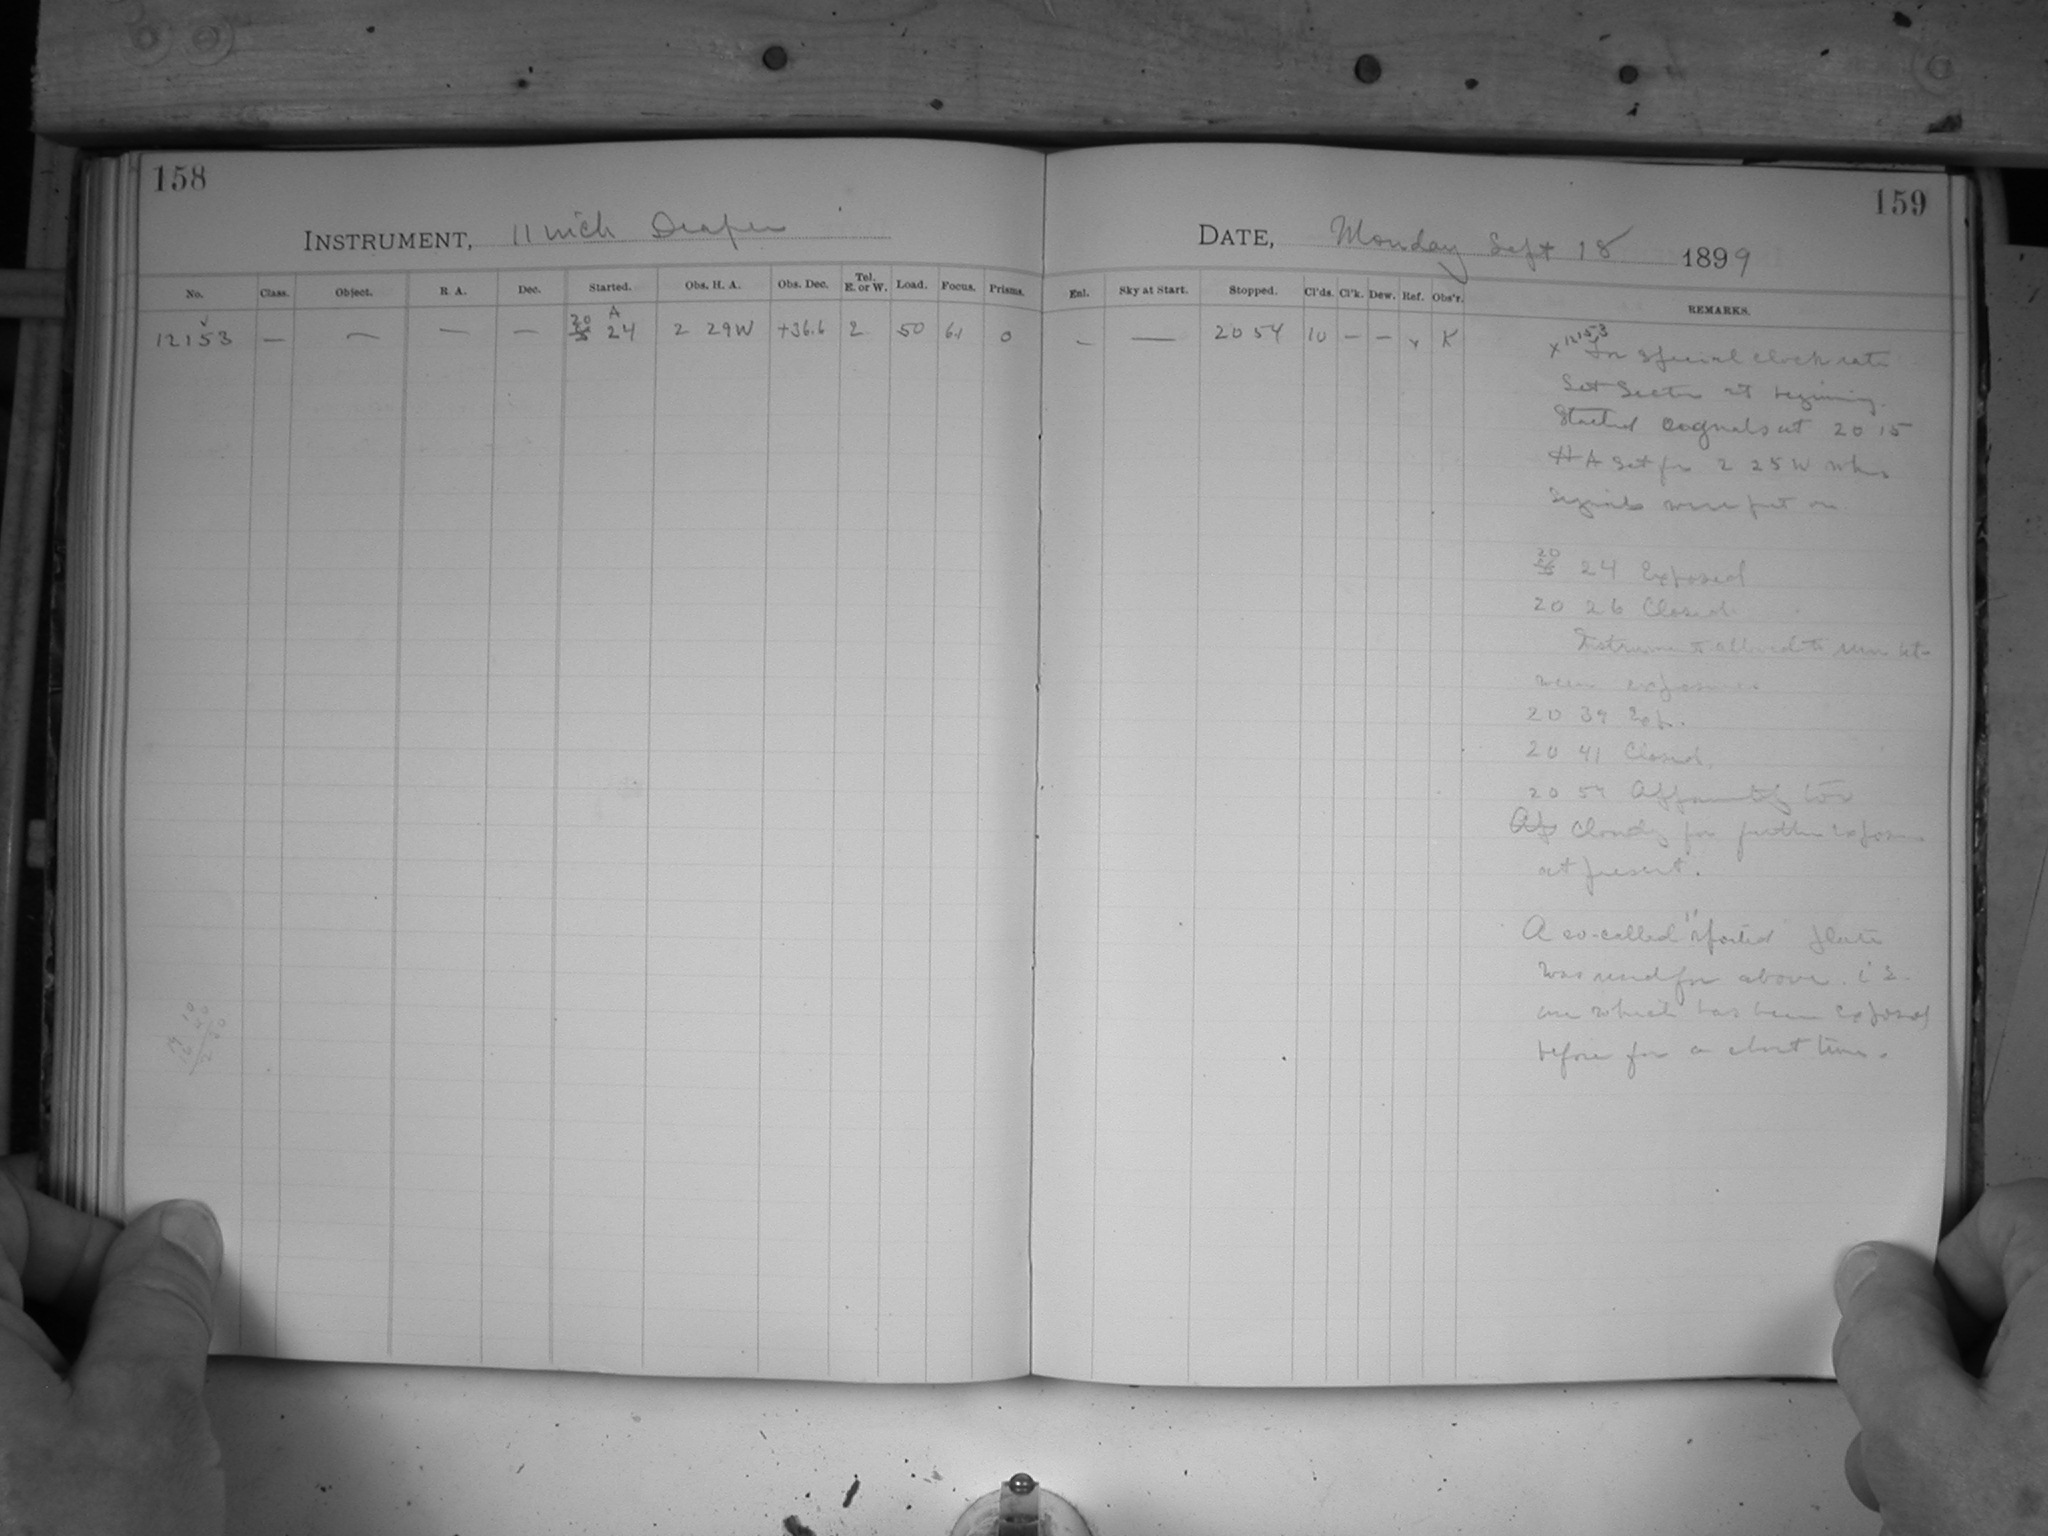 158
INSTRUMENT, 11 inch Draper
No. Class. Object. R. A. Dec. Started. Obs. H. A. Obs. Dec. Tel. E. or W. Load. Focus. Prisms.
12153 — — — — 20 24 A 2 29W +36.6 2 50 6.1 0
159
DATE, Monday Sept 18 1899
Enl. Sky at Start. Stopped. Cl'ds. Cl'k. Dew. Ref. Obs'r. REMARKS.
— — 20 54 10 — — x K
x 12153 For special clock rate
Set Sector at beginning.
Started signals at 20 15
HA set for 2 25W when
Signals were put on
20 24 Exposed
20 26 Closed
Instrument allowed to run bet-
ween exposures.
20 39 Exp.
20 41 Closed.
20 54 Apparently too
cloudy for further exposure
at present.
A so-called "spoiled" plate
was used for above. i.e.
one which has been exposed
before for a short time.